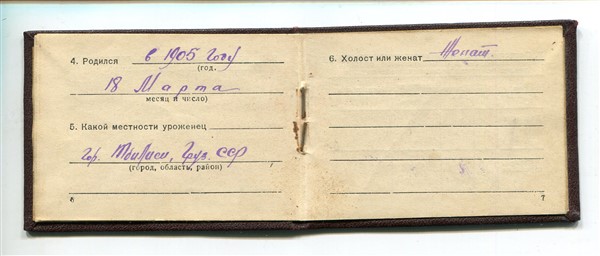 4. Родился в 1905 году
(год,
18 Марта
месяц и число)
5. Какой местности уроженец
гор. Тбилиси, Груз. ССР
(город, область, район)
6. Холост или женат Женат.
7